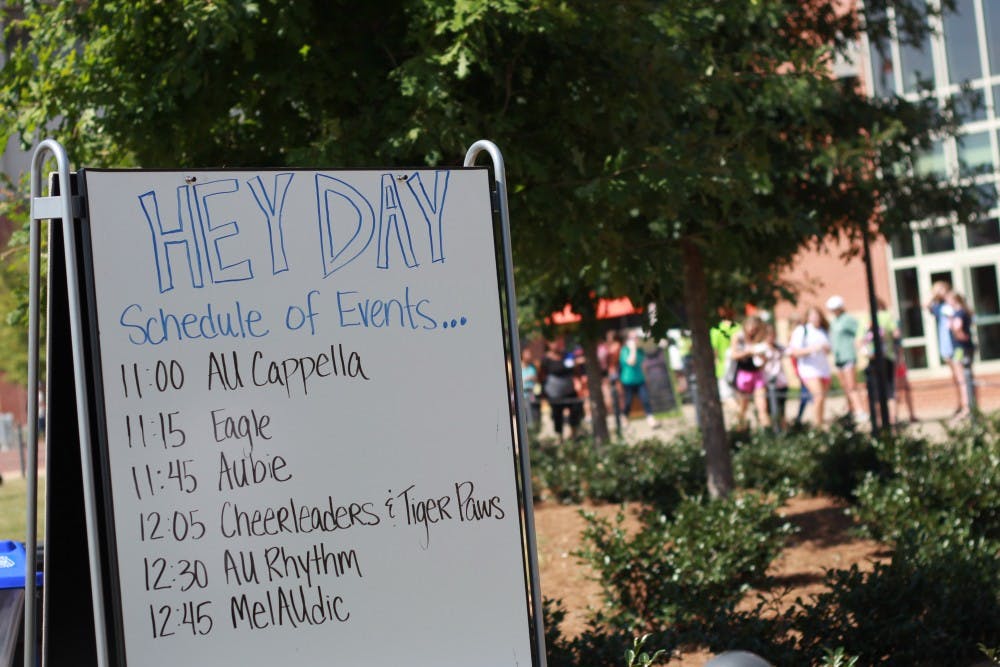 HEY DAY
Schedule of Events...
11:00 AU Cappella
11:15 Eagle
11:45 Aubie
12:05 Cheerleaders & Tiger Paws
12:30 AU Rhythm
12:45 MelAUdic